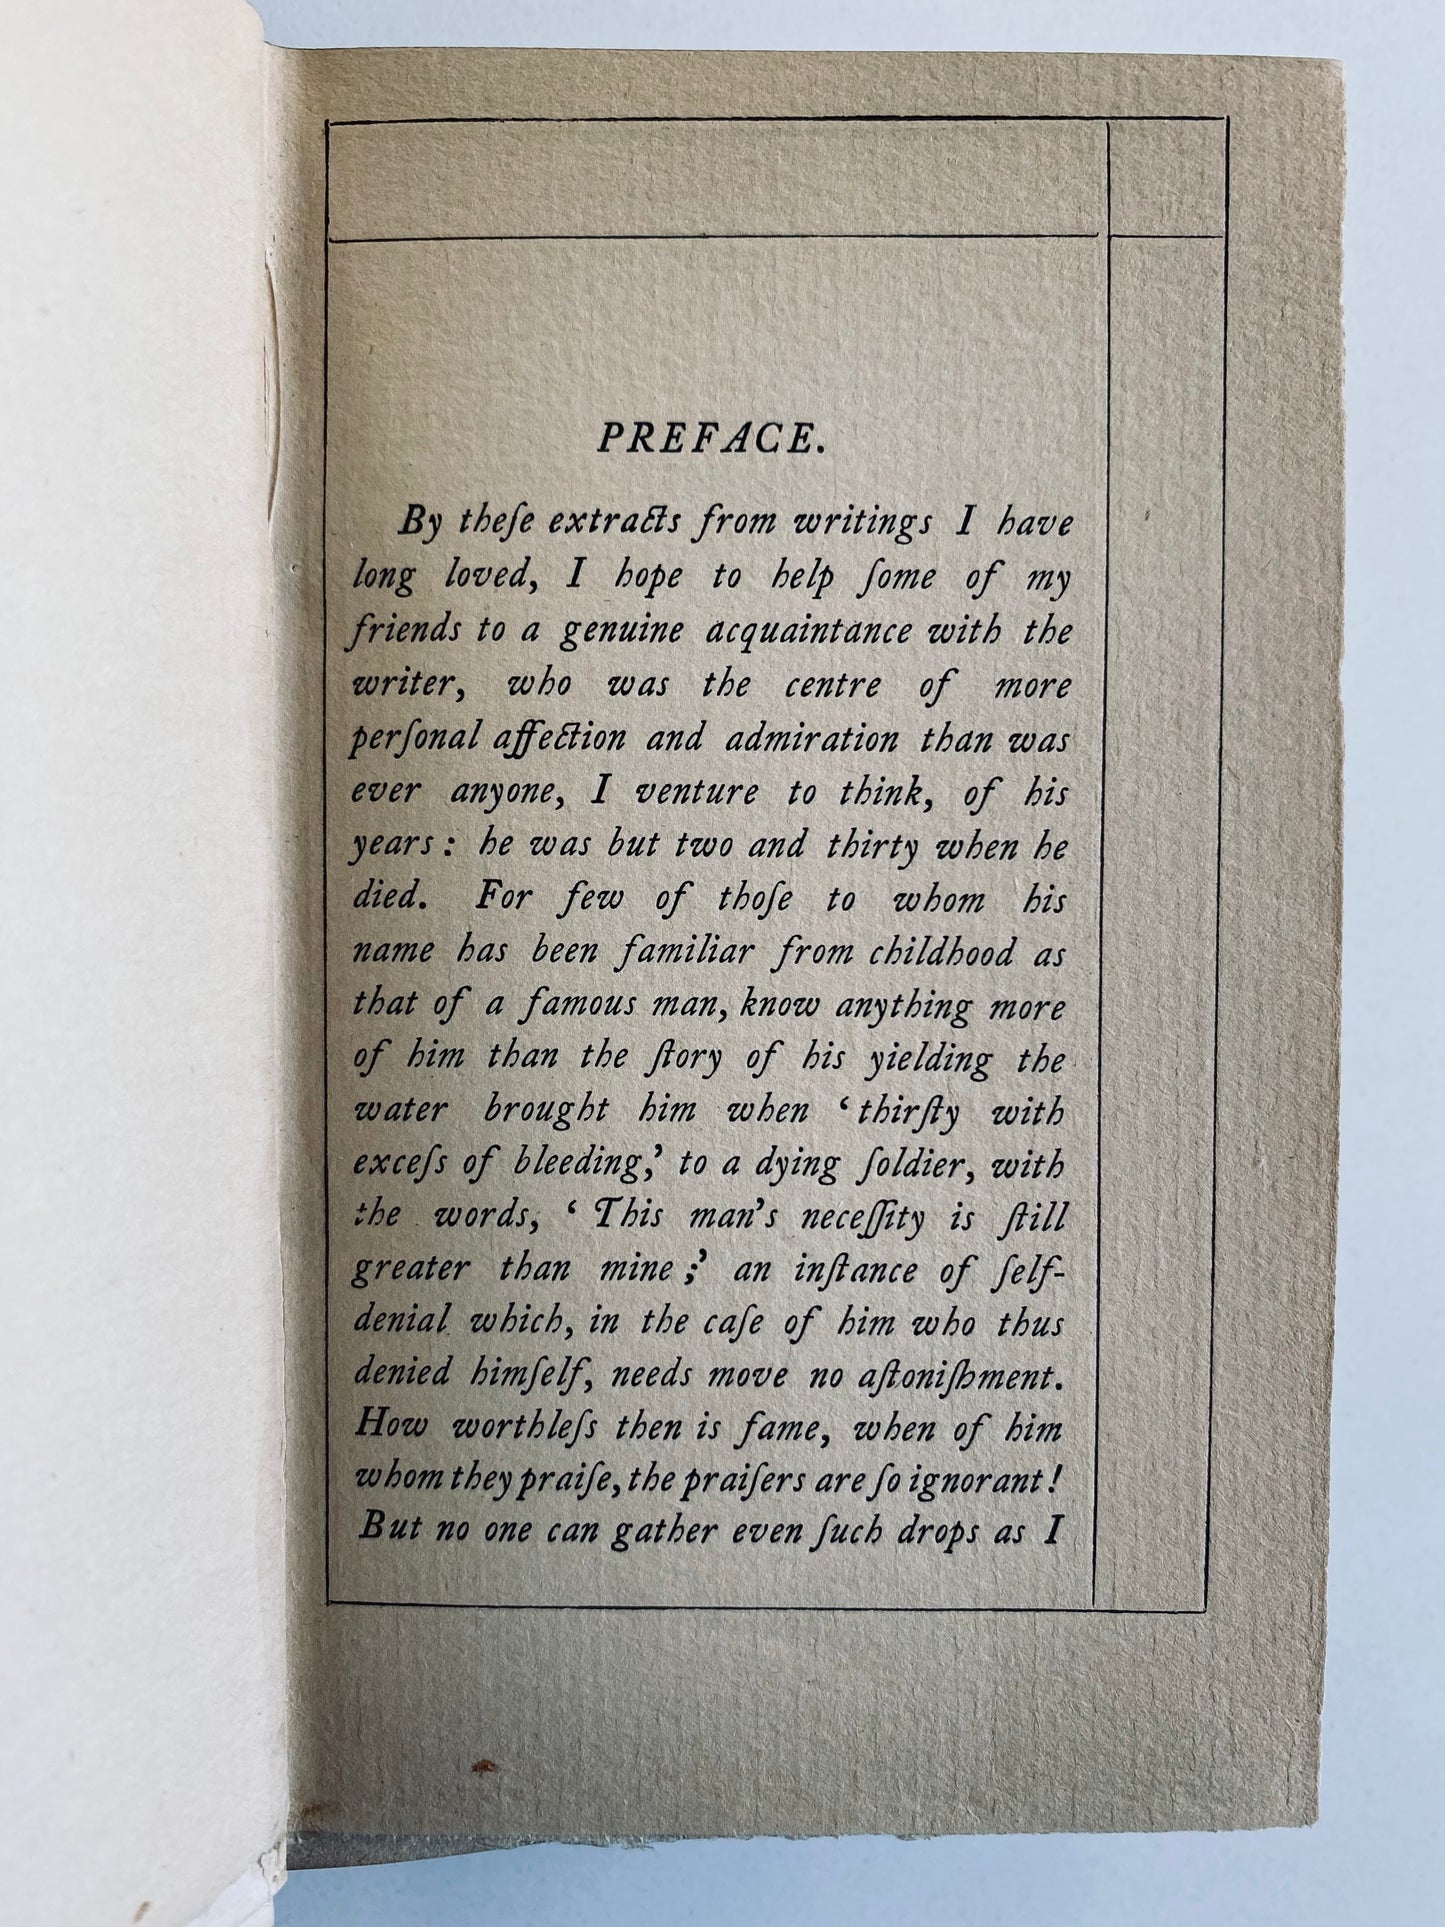 PREFACE.
By theſe extracts from writings I have
long loved, I hope to help ſome of my
friends to a genuine acquaintance with the
writer, who was the centre of more
perſonal affection and admiration than was
ever anyone, I venture to think, of his
years: he was but two and thirty when he
died. For few of thoſe to whom his
name has been familiar from childhood as
that of a famous man, know anything more
of him than the ſtory of his yielding the
water brought him when ‘thirſty with
exceſs of bleeding,’ to a dying ſoldier, with
the words, ‘This man’s neceſſity is ſtill
greater than mine;’ an inſtance of ſelf-
denial which, in the caſe of him who thus
denied himſelf, needs move no aſtoniſhment.
How worthleſs then is fame, when of him
whom they praiſe, the praiſers are ſo ignorant!
But no one can gather even ſuch drops as I